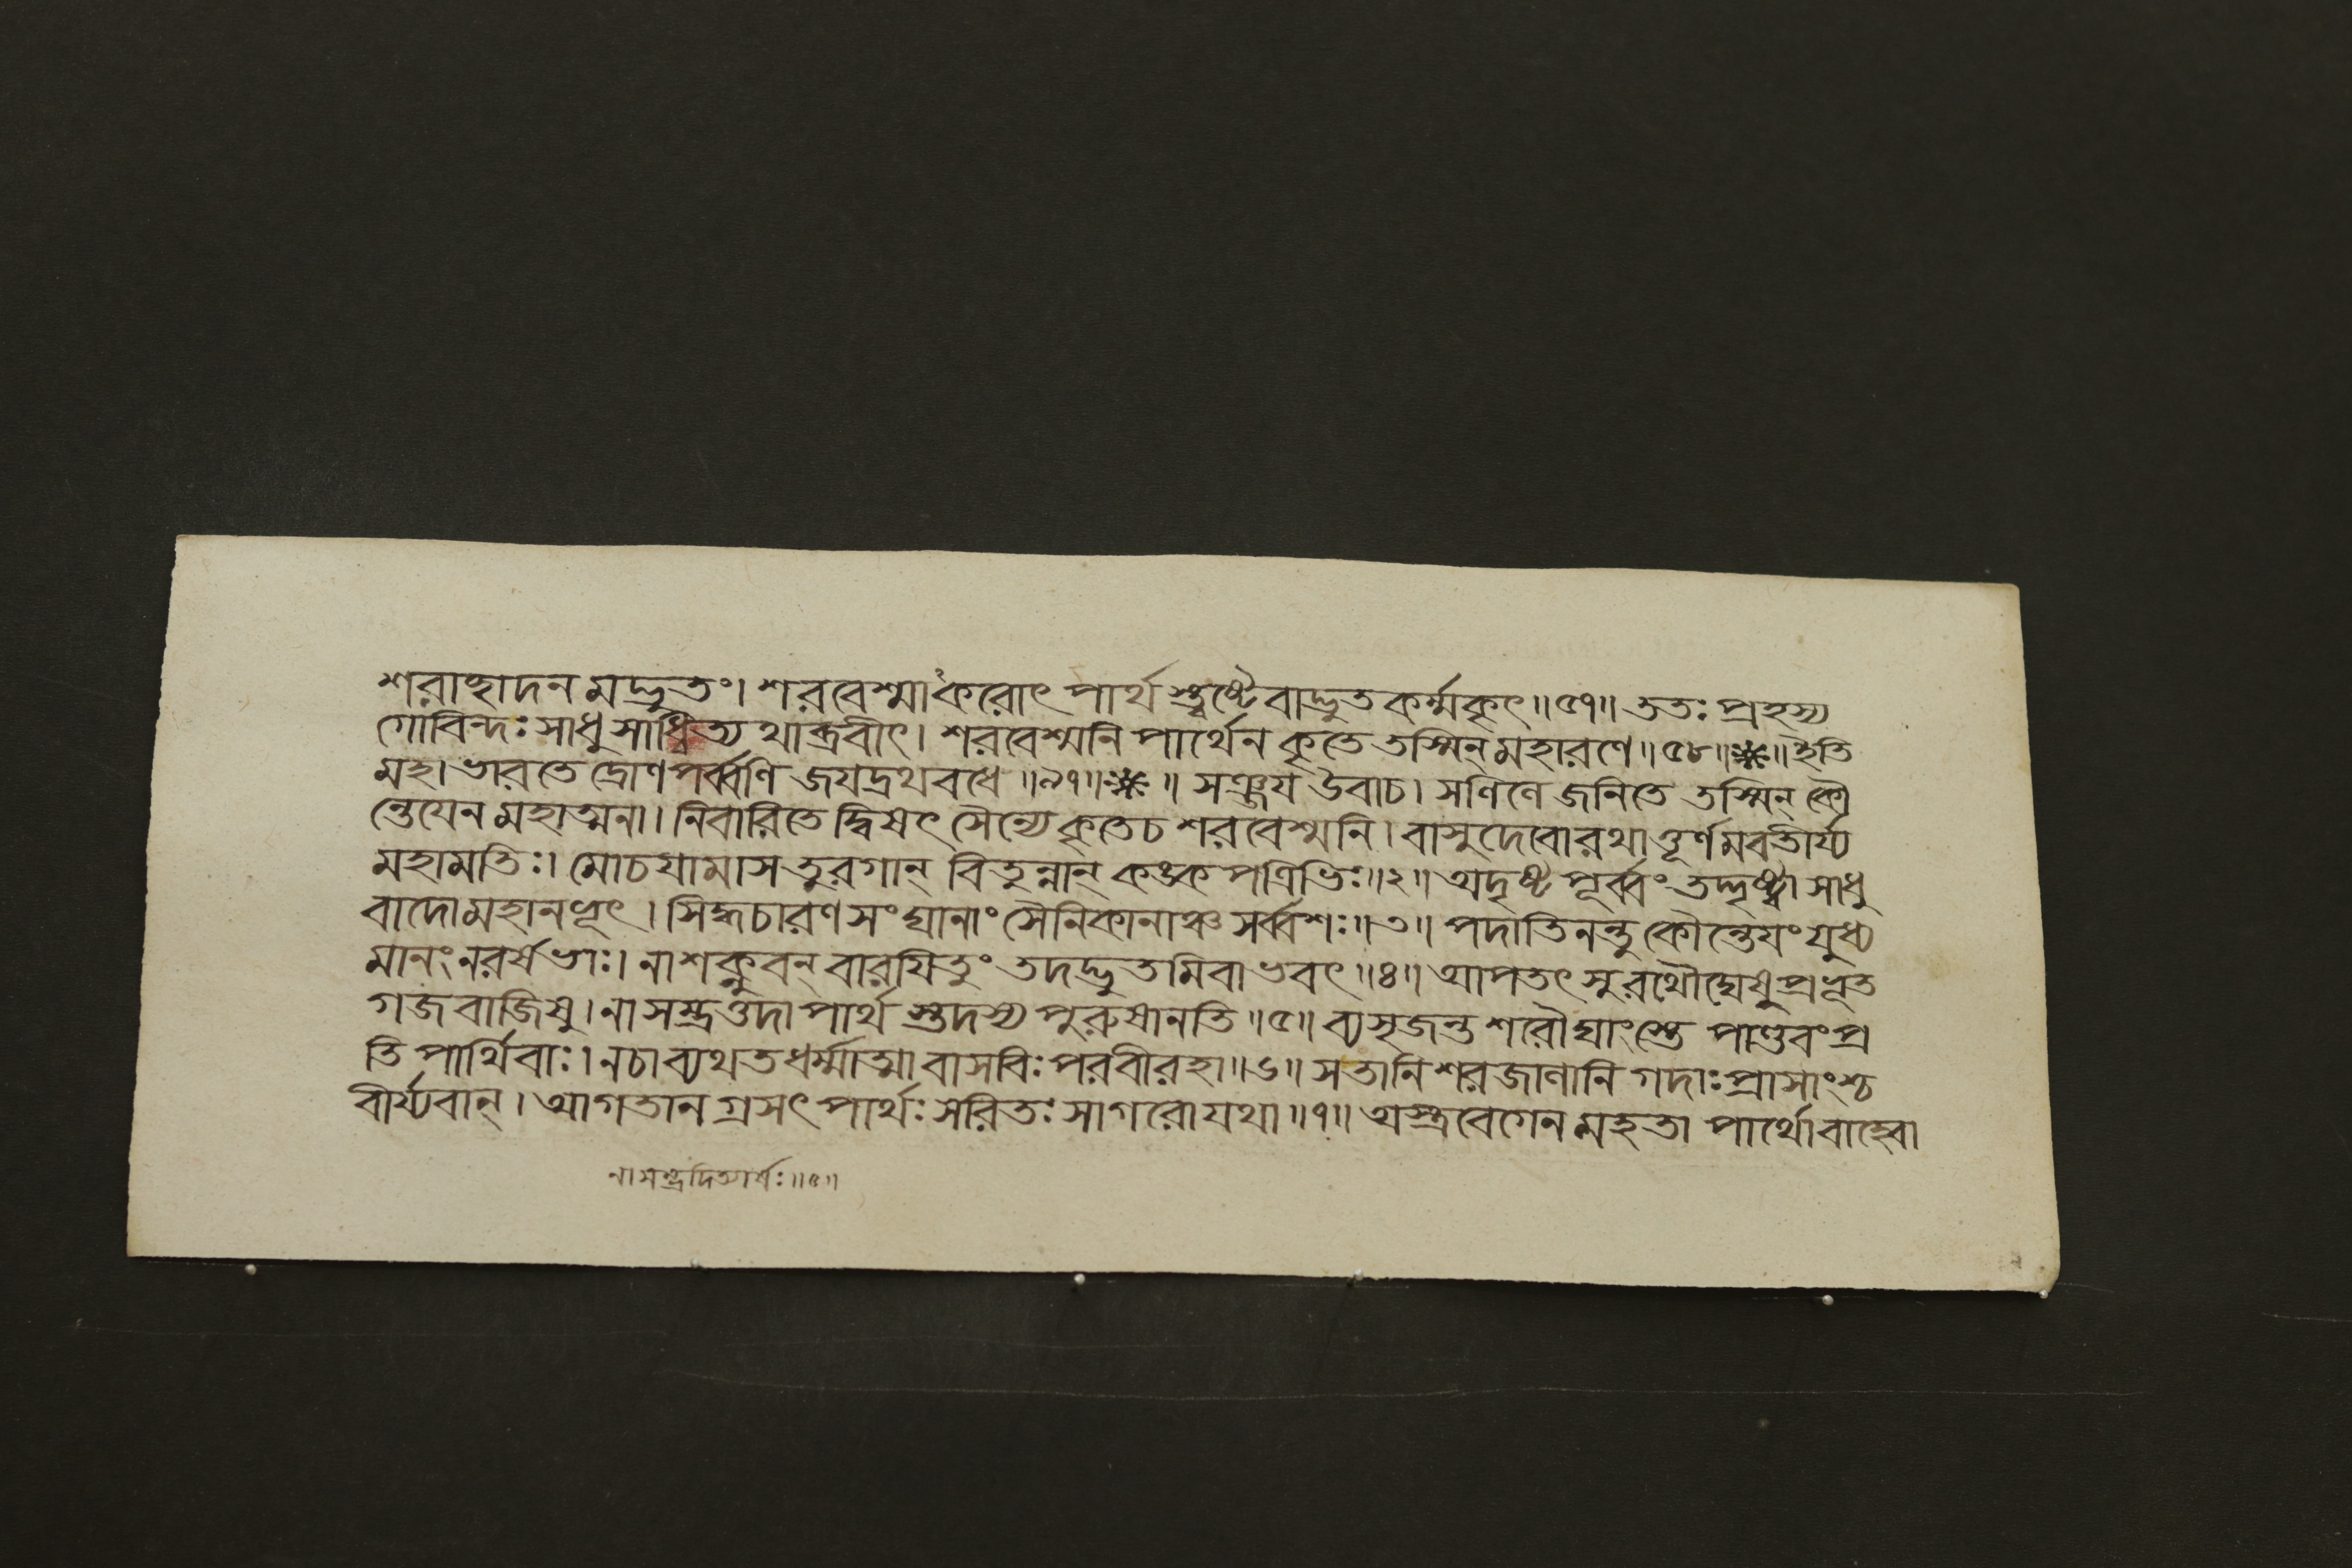 শরাচ্ছাদনমদ্ভুতং। শরবেশ্মাকরোৎ পার্থ স্ত্বষ্টৈবাদ্ভুতকর্ম্মকৃৎ॥৫৭॥ ততঃ প্রহস্য
গোবিন্দঃ সাধুসাধ্বিত্য থাব্রবীৎ। শরবেশ্মনি পার্থেন কৃতে তস্মিন্মহারণে॥৫৮॥❋॥ ইতি
মহাভারতে দ্রোণপর্ব্বণি জযদ্রথবধে॥৯৭॥❋॥ সঞ্জয উবাচ। সলিলে জনিতে তস্মিন্ কৌ
ন্তেযেন মহাত্মনা। নিবারিতে দ্বিষৎ সৈন্যে কৃতেচ শরবেশ্মনি। বাসুদেবোরথাত্তূর্ণমবতীর্য্য
মহামতিঃ। মোচযামাস তুরগান্ বিতুন্নান্ কঙ্কপত্রিভিঃ॥২॥ অদৃষ্ট পূর্ব্বং তদ্দৃষ্ট্বা সাধু
বাদোমহানভূৎ। সিদ্ধচারণসংঘানাং সৈনিকানাঞ্চ সর্ব্বশঃ॥৩॥ পদাতিনন্তু কৌন্তেযং যুধ্য
মানং নরর্ষভাঃ। নাশক্নুবন্ বারযিতুং তদদ্ভুতমিবাভবৎ॥৪॥ আপতৎসু রথৌঘেষু প্রভূত
গজবাজিষু। নাসম্ভ্রমত্তদা পার্থ স্তদস্য পুরুষানতি॥৫॥ ব্যসৃজন্ত শরৌঘাংস্তে পাণ্ডবং প্র
তি পার্থিবাঃ। নচাব্যথত ধর্ম্মাত্মা বাসবিঃ পরবীরহা॥৬॥ সতানি শরজালানি গদাঃ প্রাসাংশ্চ
বীর্য্যবান্। আগতানগ্রসৎ পার্থঃ সরিতঃ সাগরোযথা॥৭॥ অস্ত্রবেগেন মহতা পার্থোবাহ্বো